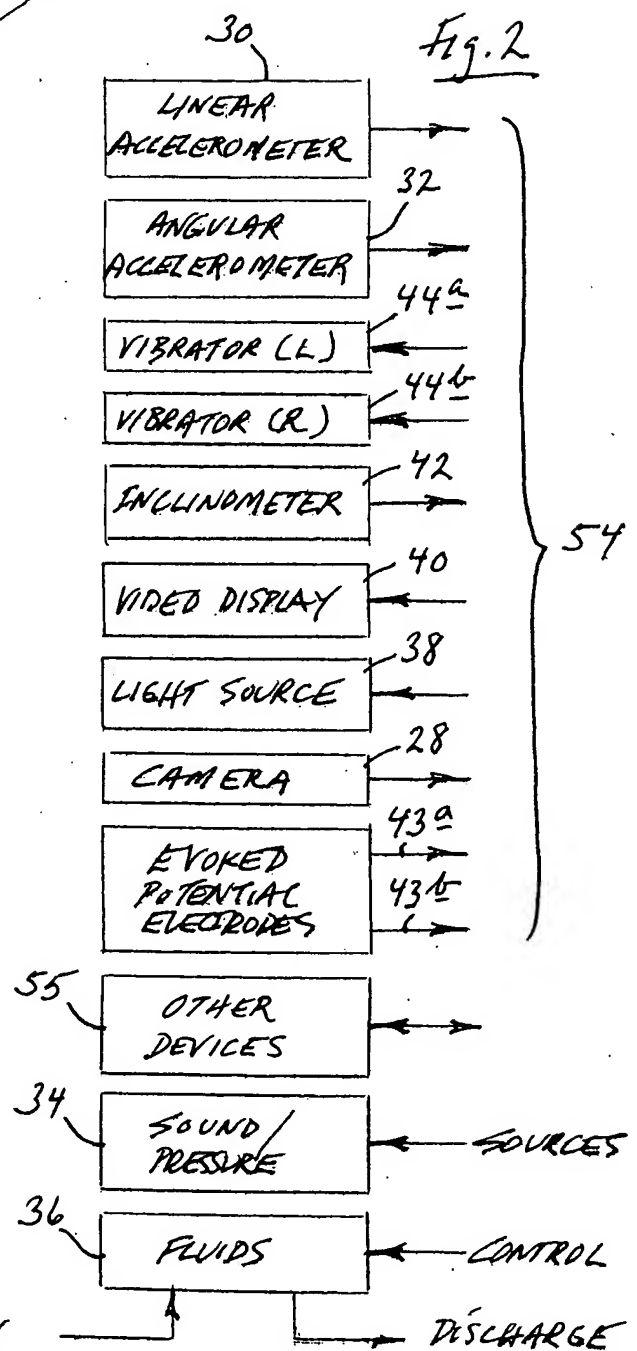 Fig. 2
30
LINEAR
ACCELEROMETER
32
ANGULAR
ACCELEROMETER
44a
VIBRATOR (L)
44b
VIBRATOR (R)
42
INCLINOMETER
54
40
VIDEO DISPLAY
38
LIGHT SOURCE
28
CAMERA
43a
EVOKED
POTENTIAL
ELECTRODES
43b
55
OTHER
DEVICES
34
SOUND/
PRESSURE
SOURCES
36
FLUIDS
CONTROL
DISCHARGE